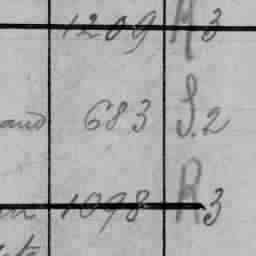 1209 A 3
and 683 S.2
1098 R3